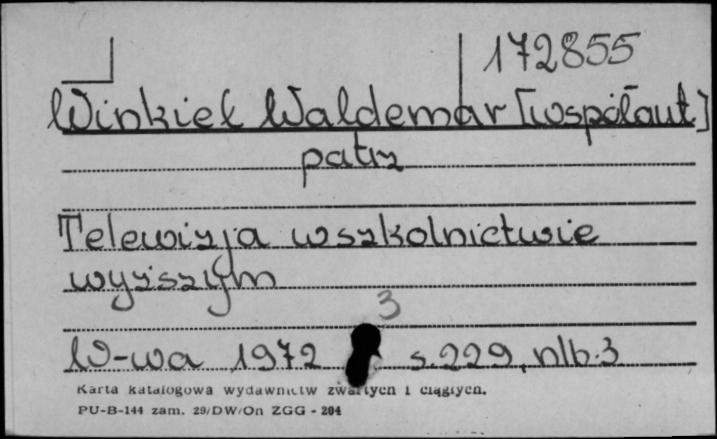 172855
Winkiel Waldemar [współaut]
patrz
Telewizja w szkolnictwie
wyższym
3
W-wa 1972 s. 229, nlb. 3
Karta katalogowa wydawnictw zwartych i ciągłych.
PU-B-144 zam. 29/DW/On ZGG - 204